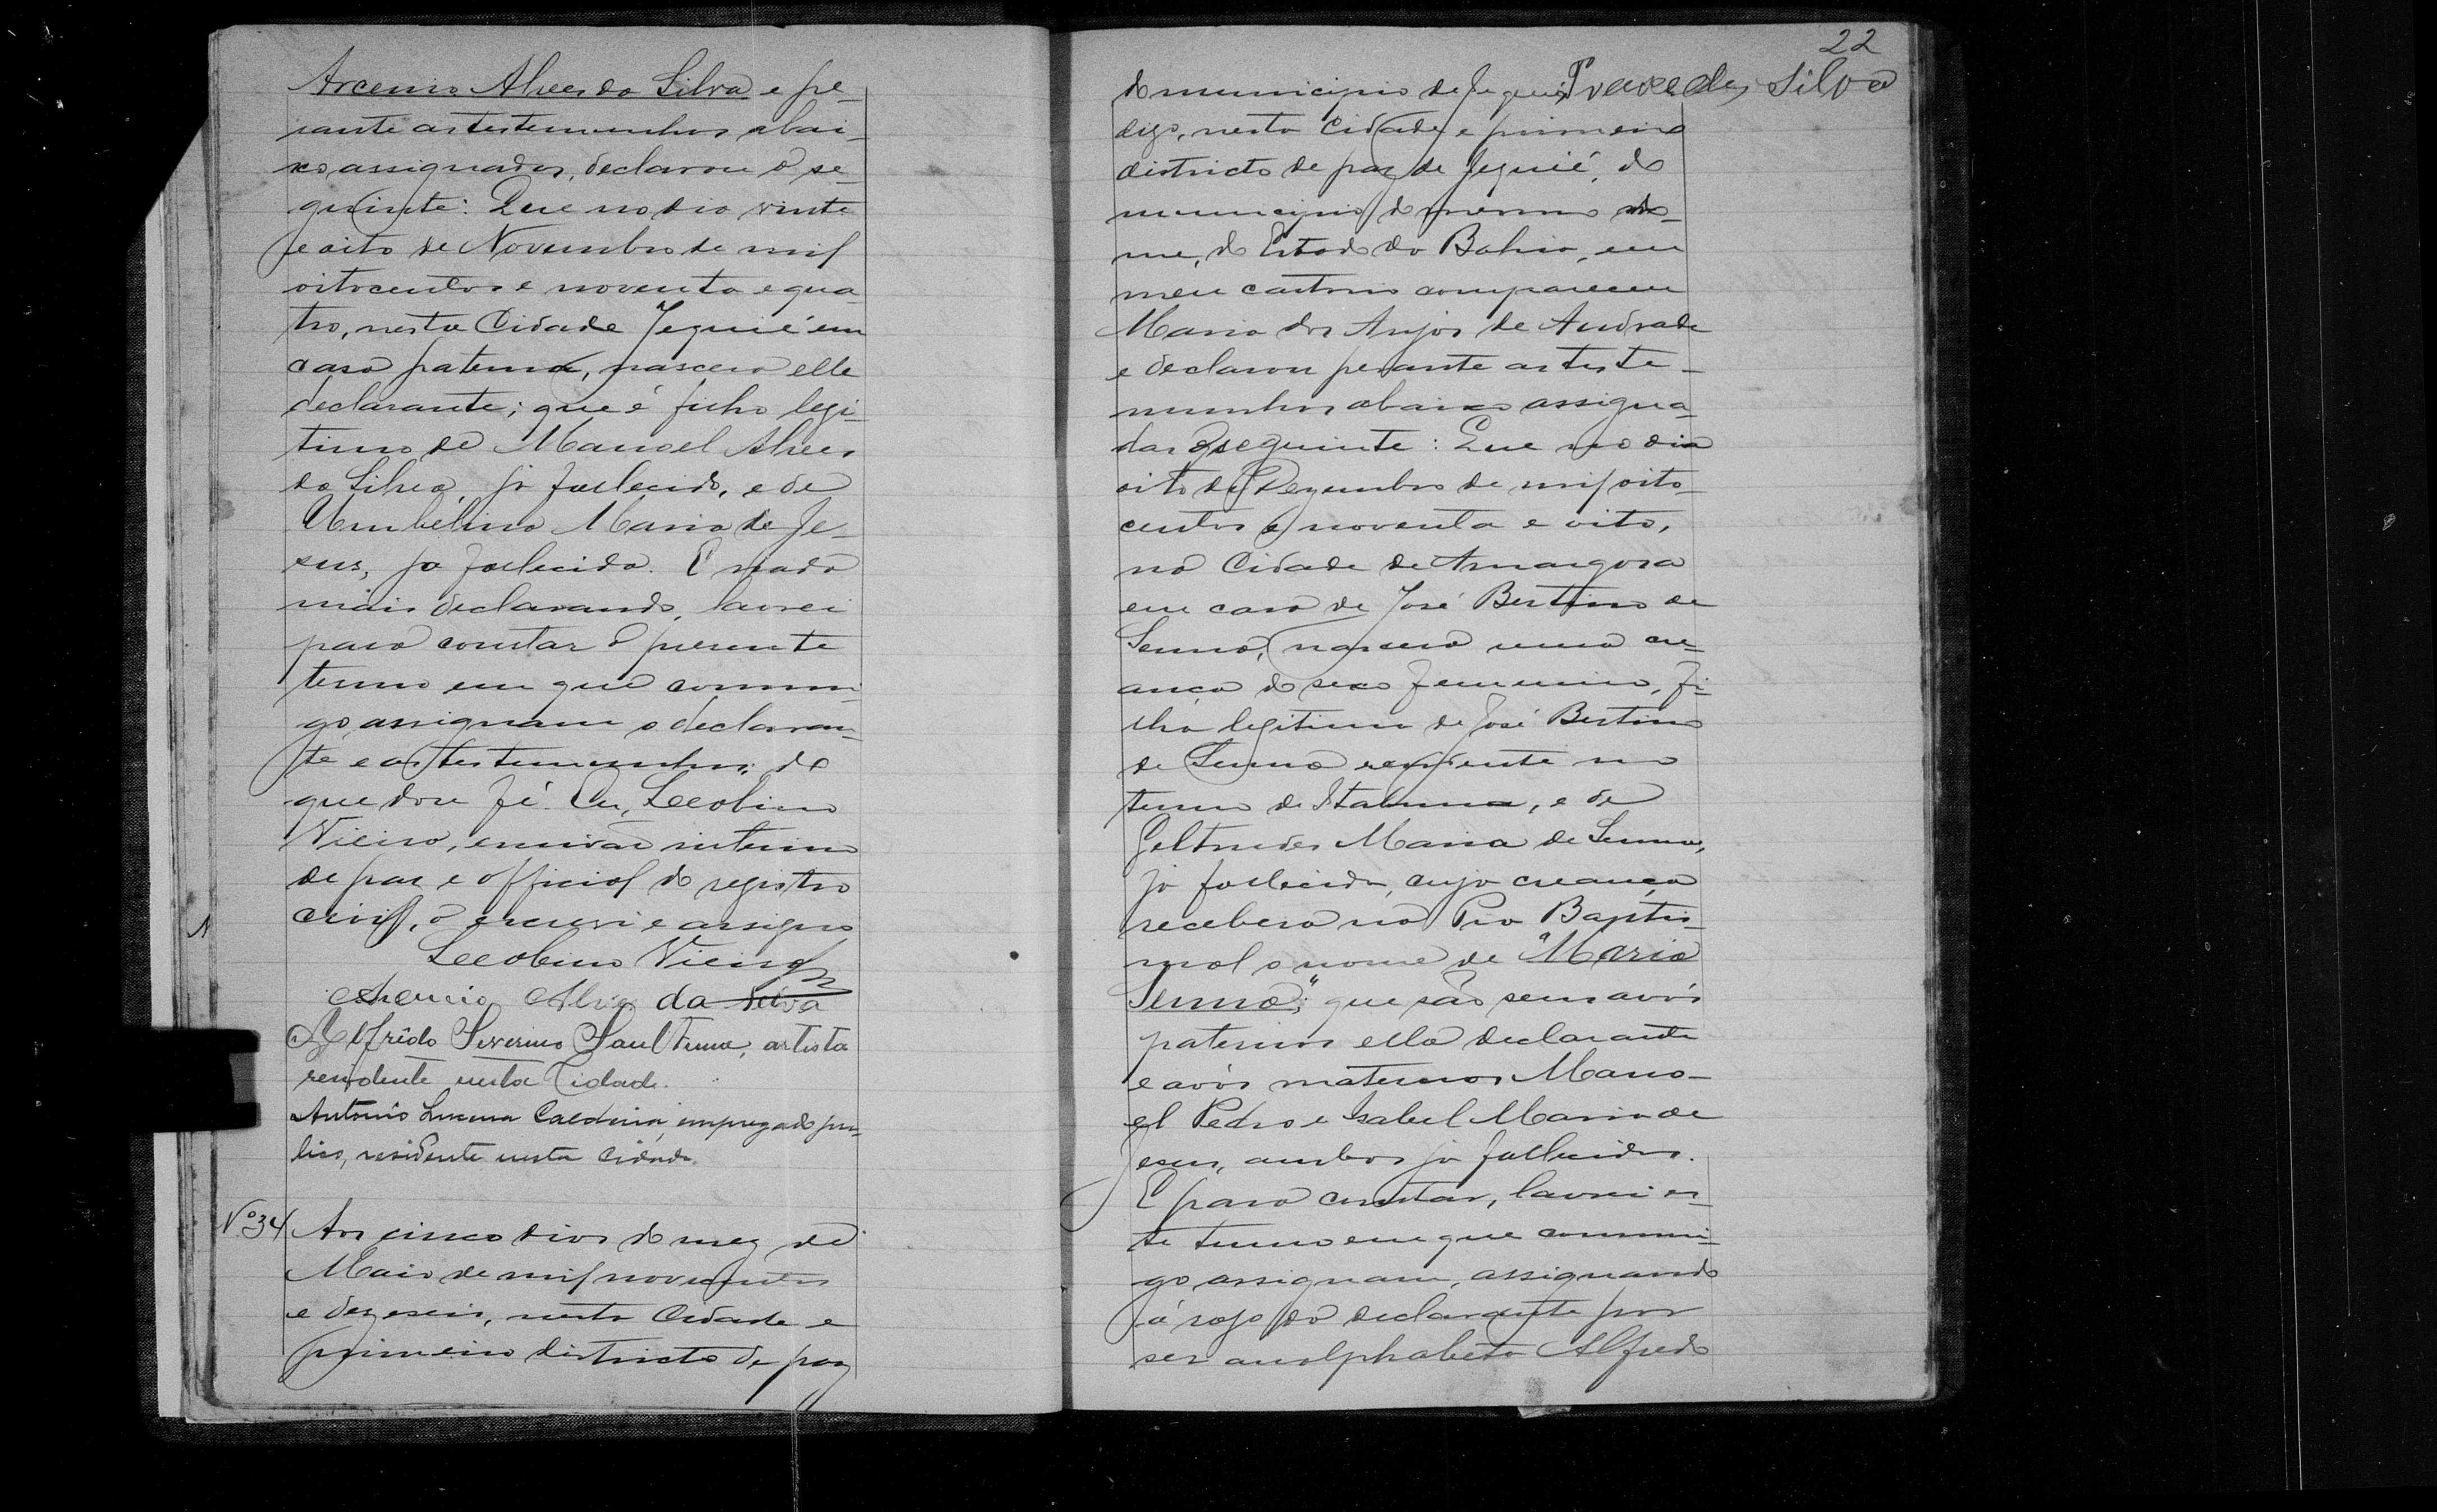 Arcenio Alves da Silva e pe-
rante as testemunhas abai-
xo assignadas, declarou o se-
guinte: Que no dia vinte
e oito de Novembro de mil
oitocentos e noventa e qua-
tro, nesta Cidade Jequié em
casa paterna, nascera elle
declarante; que é filho legi-
timo de Manoel Alves
da Silva, já fallecido, e de
Umbelina Maria de Je-
sus, já fallecida. E nada
mais declarando, lavrei
para constar o presente
termo em que commi-
go assignam o declaran-
te e as testemunhas; do
que dou fé. Eu, Leolino
Vieira, escrivão interino
de paz e official do registro
civil, o escrevi e assigno
Leolino Vieira
Arcenio Alves da Silva
Alfrêdo Severino, artista
residente nesta Cidade.
Antonio Lucena, empregado pu-
blico, residente nesta Cidade.
Nº 34 Aos cinco dias do mez de
Maio de mil novecentos
e dezeseis, nesta Cidade e
primeiro districto de paz
22
do municipio de Jequié, Silva
digo, nesta Cidade e primeiro
districto de paz de Jequié, do
municipio do mesmo no-
me, do Estado da Bahia, em
meu cartorio compareceu
Maria dos Anjos de Andrade
e declarou perante as teste-
munhas abaixo assigna-
das o seguinte: Que no dia
oito de Dezembro de mil oito-
centos e noventa e oito,
na Cidade de Amargosa
em casa de José Bertino de
Senna, nascera uma cre-
ança do sexo femenino, fi-
lha legitima de José Bertino
de Senna residente no
termo de Itabuna, e de
Geltrudes Maria de Senna,
já fallecida, cuja creança
recebera na Pia Baptis-
mal o nome de "Maria
Senna"; que são seus avós
paternos ella declarante
e avós maternos Mano-
el Pedro e Isabel Maria de
Jesus, ambos já fallecidos.
E para constar, lavrei es-
te termo em que commi-
go assignam, assignando
á rogo da declarante por
ser analphabeta Alfredo